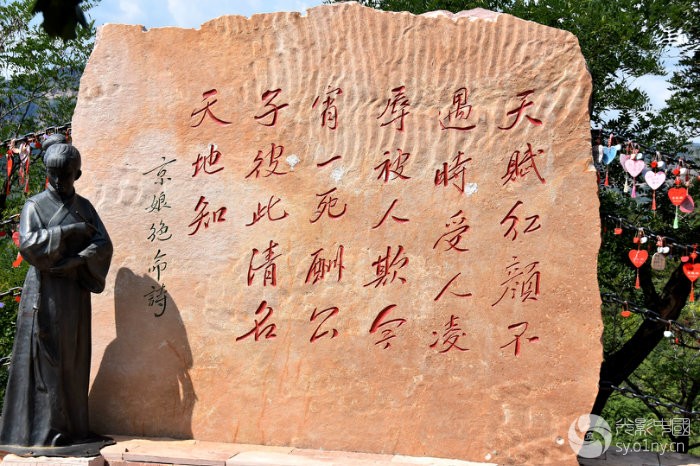 天赋红颜不
遇時受人凌
辱被人欺今
宵一死酬公
子彼此清名
天地知
京娘绝命詩
光影中國
sy.o1ny.cn